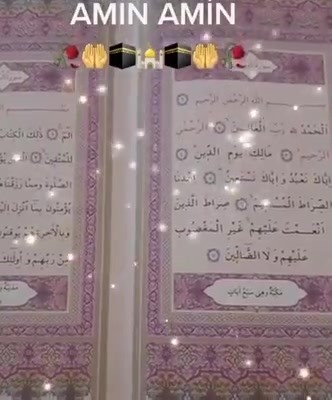 AMIN AMİN
🥀🤲🕋🕌🕋🤲🥀
بِسْمِ اللهِ الرَّحْمٰنِ الرَّحِيمِ
اَلْحَمْدُ لِلّٰهِ رَبِّ الْعَالَمِينَ الرَّحْمٰنِ
الرَّحِيمِ مَالِكِ يَوْمِ الدِّينِ
اِيَّاكَ نَعْبُدُ وَاِيَّاكَ نَسْتَعِينُ اِهْدِنَا
الصِّرَاطَ الْمُسْتَقِيمَ صِرَاطَ الَّذِينَ
اَنْعَمْتَ عَلَيْهِمْ غَيْرِ الْمَغْضُوبِ
عَلَيْهِمْ وَلَا الضَّالِّينَ
مَكِّيَّةٌ وَهِيَ سَبْعُ اٰيَاتٍ
الٓمٓ ذٰلِكَ الْكِتَابُ
لِلْمُتَّقِينَ
الصَّلٰوةَ وَمِمَّا رَزَقْنَا
يُؤْمِنُونَ بِمَا اُنْزِلَ اِلَيْكَ
وَبِالْاٰخِرَةِ هُمْ يُوقِنُونَ
مِنْ رَبِّهِمْ وَاُولٰٓئِكَ